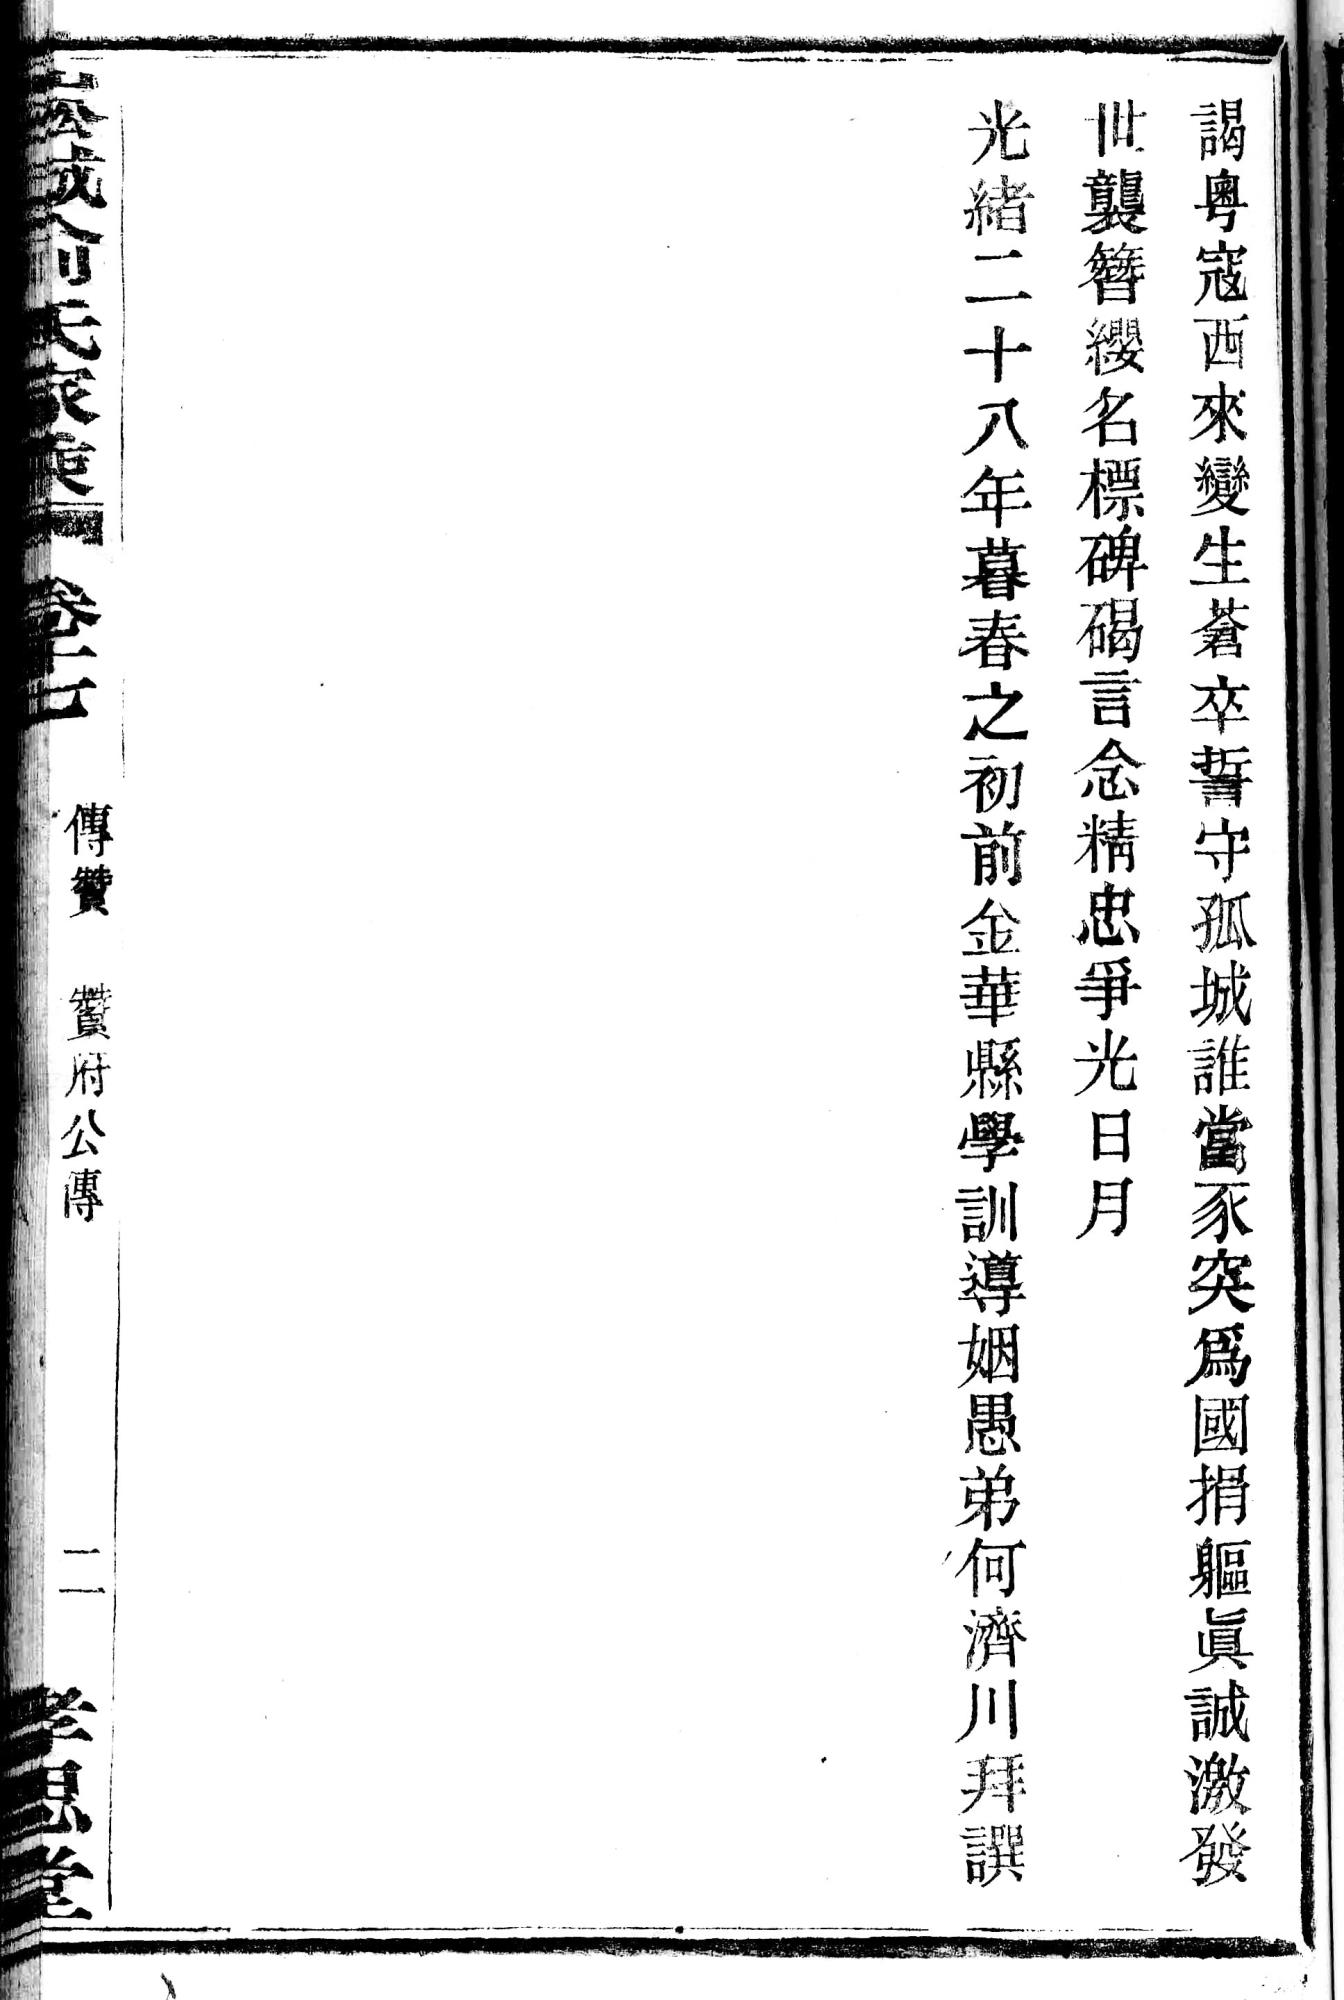 謁粵寇西來變生蒼卒誓守孤城誰當豕突爲國捐軀眞誠激發
世襲簪纓名標碑碣言念精忠爭光日月
光緒二十八年暮春之初前金華縣學訓導姻愚弟何濟川拜譔
氏家乘 卷十七 傳贊 贊府公傳 二 孝思堂